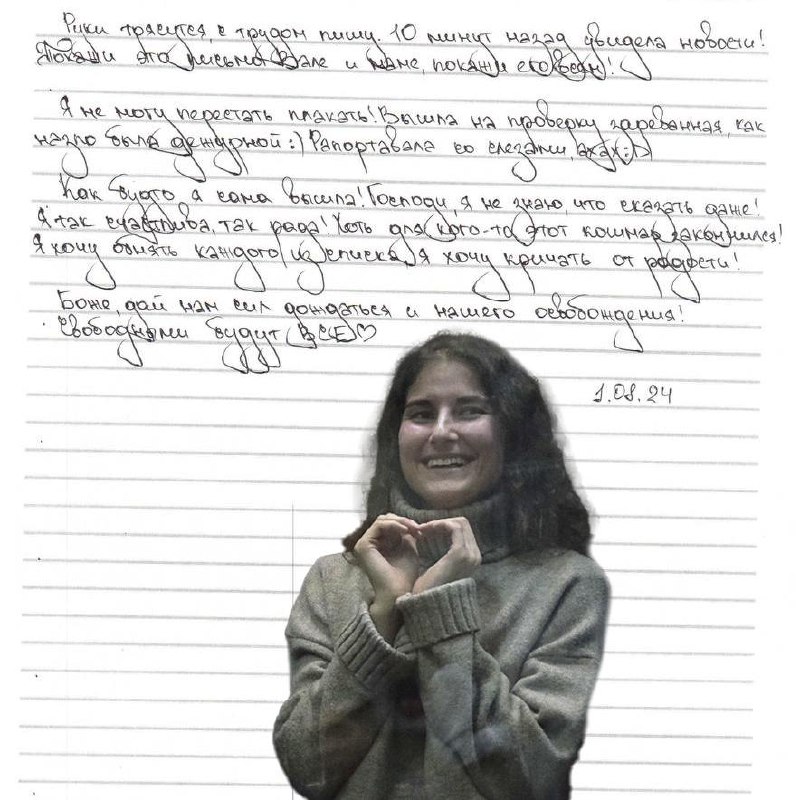 Руки трясутся, с трудом пишу. 10 минут назад увидела новости!
Покажи это письмо Вале и маме, покажи его всем!
Я не могу перестать плакать! Вышла на проверку зареванная, как
назло была дежурной :) Рапортавала со слезами, ахах :D
Как будто я сама вышла! Господи, я не знаю, что сказать даже!
Я так счастлива, так рада! Хоть для кого-то этот кошмар закончился!
Я хочу обнять каждого из списка, я хочу кричать от радости!
Боже, дай нам сил дождаться и нашего освобождения!
Свободными будут ВСЕ♡
1.08.24